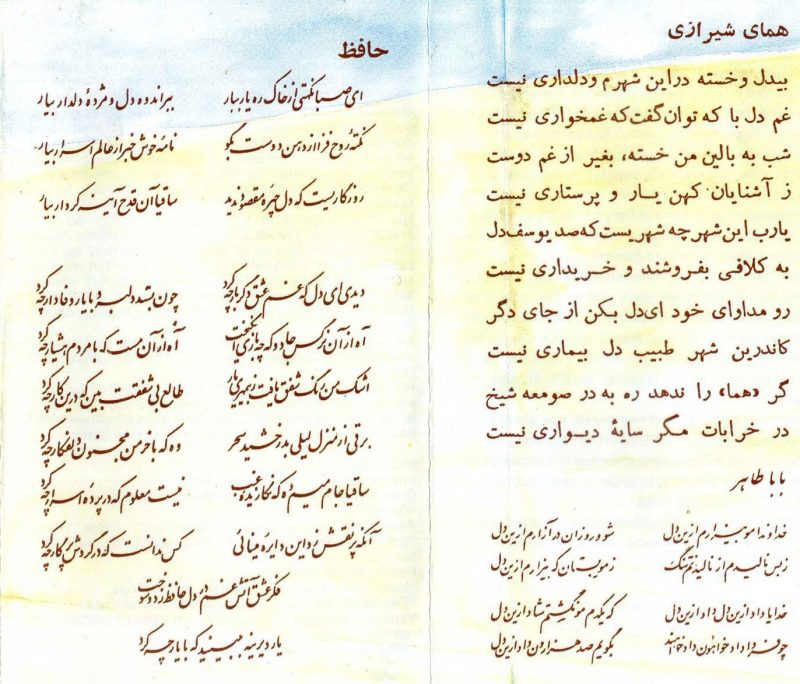 همای شیرازی
بیدل وخسته دراین شهرم ودلداری نیست
غم دل با که توان گفت که غمخواری نیست
شب به بالین من خسته، بغیر ازغم دوست
ز آشنایان کهن یار و پرستاری نیست
یارب این شهر چه شهریست که صد یوسف دل
به کلافی بفروشند و خریداری نیست
رو مداوای خود ای دل بکن از جای دگر
کاندرین شهر طبیب دل بیماری نیست
گر «هما» را ندهد ره به در صومعه شیخ
در خرابات مگر سایهٔ دیواری نیست
باباطاهر
خداوندا مو بیزارم ازین دل شو و روزان در آزارم ازین دل
زبس نالیدم از نالیدنم تنگ زمو بستان که بیزارم ازین دل
خدایا داد ازین دل داد ازین دل که یکدم مو نگشتم شاد ازین دل
چو فردا داد خواهون داد خواهند بگویم صد هزارون داد ازین دل
حافظ
ای صبا نکهتی از خاک ره یار بیار ببر اندوه دل و مژدهٔ دلدار بیار
نکتهٔ روح فزا از دهن دوست بگو نامهٔ خوش خبر از عالم اسرار بیار
روزگاریست که دل چهرهٔ مقصود ندید ساقیا آن قدح آینه کردار بیار
دیدی ای دل که غم عشق دگر بار چه کرد چون بشد دلبر و با یار وفادار چه کرد
آه از آن نرگس جادو که چه بازی انگیخت آه از آن مست که با مردم هشیار چه کرد
اشک من رنگ شفق یافت ز بیمهری یار طالع بی شفقت بین که درین کار چه کرد
برقی از منزل لیلی بدرخشید سحر وه که با خرمن مجنون دلفگار چه کرد
ساقیا جام میم ده که نگارندهٔ غیب نیست معلوم که در پردهٔ اسرار چه کرد
آنکه پرنقش زد این دایرهٔ مینائی کس ندانست که در گردش پرگار چه کرد
فکر عشق آتش غم در دل حافظ زد و سوخت
یار دیرینه ببینید که با یار چه کرد